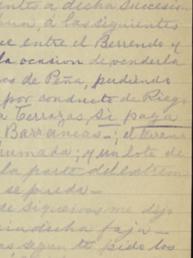 ento a dicha Sucesion
una, a las siguientes
que entre el Berrendo y
la ocasion de venderla
os de Peña, pudiendo
por conducto de Riego
a Terrazas, si paga
Barrancas-; el terreno
rumada; y un lote de
la parte del
se pueda-
de siqueiros me dijo
dicha faja-
as segun te pido los